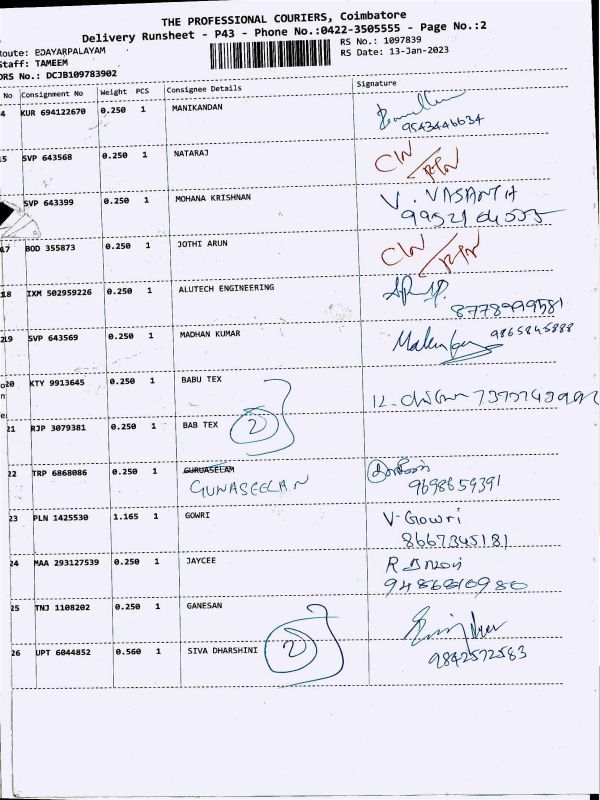 THE PROFESSIONAL COURIERS, Coimbatore
Delivery Runsheet - P43 - Phone No.:0422-3505555 - Page No.:2
Route: EDAYARPALAYAM
RS No.: 1097839
Staff: TAMEEM
RS Date: 13-Jan-2023
DRS No.: DCJB109783902
No Consignment No Weight PCS Consignee Details Signature
4 KUR 694122670 0.250 1 MANIKANDAN
9543446634
5 SVP 643568 0.250 1 NATARAJ
SVP 643399 0.250 1 MOHANA KRISHNAN V. VASANTHA
17 BOD 355873 0.250 1 JOTHI ARUN
18 IXM 502959226 0.250 1 ALUTECH ENGINEERING
8778999581
219 SVP 643569 0.250 1 MADHAN KUMAR
9865845888
20 KTY 9913645 0.250 1 BABU TEX
21 RJP 3079381 0.250 1 BAB TEX 2
22 TRP 6868086 0.250 1 GURUASEELAM
GUNASEELAN 9698659391
23 PLN 1425530 1.165 1 GOWRI V-Gowri
8667345181
24 MAA 293127539 0.250 1 JAYCEE R
9486810980
25 TNJ 1108202 0.250 1 GANESAN
26 UPT 6044852 0.560 1 SIVA DHARSHINI 2
9842572583